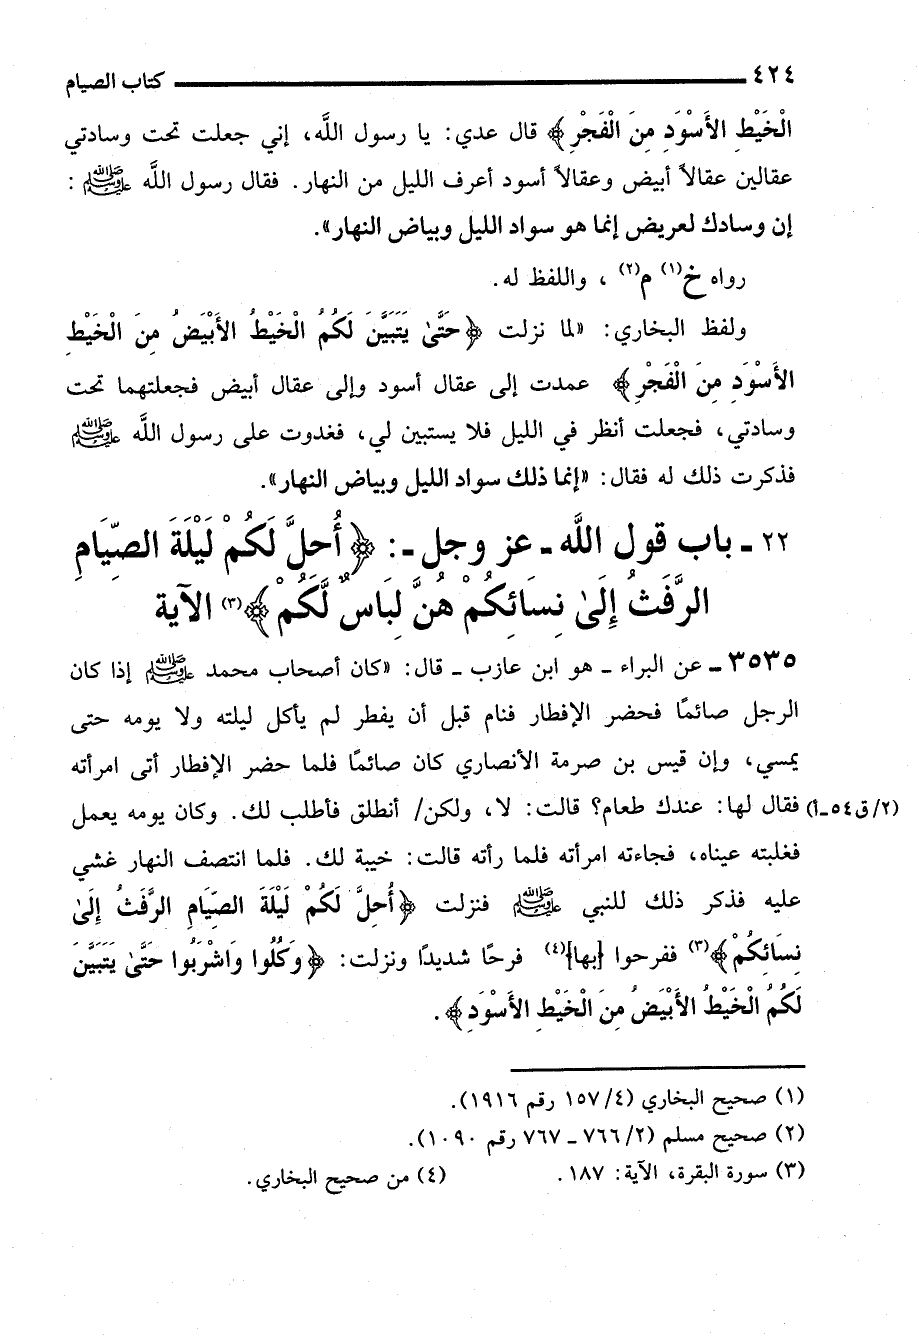 ٤٢٤ كتاب الصيام
الْخَيْطِ الأَسْوَدِ مِنَ الْفَجْرِ﴾ قال عدي: يا رسول اللَّه، إني جعلت تحت وسادتي
عقالين عقالاً أبيض وعقالاً أسود أعرف الليل من النهار. فقال رسول اللَّه ﷺ :
إن وسادك لعريض إنما هو سواد الليل وبياض النهار».
رواه خ(١) م(٢) ، واللفظ له.
ولفظ البخاري: «لما نزلت ﴿حَتَّىٰ يَتَبَيَّنَ لَكُمُ الْخَيْطُ الأَبْيَضُ مِنَ الْخَيْطِ
الأَسْوَدِ مِنَ الْفَجْرِ﴾ عمدت إلى عقال أسود وإلى عقال أبيض فجعلتهما تحت
وسادتي، فجعلت أنظر في الليل فلا يستبين لي، فغدوت على رسول اللَّه ﷺ
فذكرت ذلك له فقال: «إنما ذلك سواد الليل وبياض النهار».
٢٢ ـ باب قول اللَّه ـ عز وجل ـ: ﴿أُحِلَّ لَكُمْ لَيْلَةَ الصِّيَامِ
الرَّفَثُ إِلَىٰ نِسَائِكُمْ هُنَّ لِبَاسٌ لَّكُمْ﴾(٣) الآية
٣٥٣٥ ـ عن البراء ـ هو ابن عازب ـ قال: «كان أصحاب محمد ﷺ إذا كان
الرجل صائمًا فحضر الإفطار فنام قبل أن يفطر لم يأكل ليلته ولا يومه حتى
يمسي، وإن قيس بن صرمة الأنصاري كان صائمًا فلما حضر الإفطار أتى امرأته
(٢/ق٥٤ـأ) فقال لها: عندك طعام؟ قالت: لا، ولكن/ أنطلق فأطلب لك. وكان يومه يعمل
فغلبته عيناه، فجاءته امرأته فلما رأته قالت: خيبة لك. فلما انتصف النهار غشي
عليه فذكر ذلك للنبي ﷺ فنزلت ﴿أُحِلَّ لَكُمْ لَيْلَةَ الصِّيَامِ الرَّفَثُ إِلَىٰ
نِسَائِكُمْ﴾(٣) ففرحوا [بها](٤) فرحًا شديدًا ونزلت: ﴿وَكُلُوا وَاشْرَبُوا حَتَّىٰ يَتَبَيَّنَ
لَكُمُ الْخَيْطُ الأَبْيَضُ مِنَ الْخَيْطِ الأَسْوَدِ﴾ .
(١) صحيح البخاري (٤/ ١٥٧ رقم ١٩١٦).
(٢) صحيح مسلم (٢/ ٧٦٦ ـ ٧٦٧ رقم ١٠٩٠).
(٣) سورة البقرة، الآية: ١٨٧ . (٤) من صحيح البخاري.